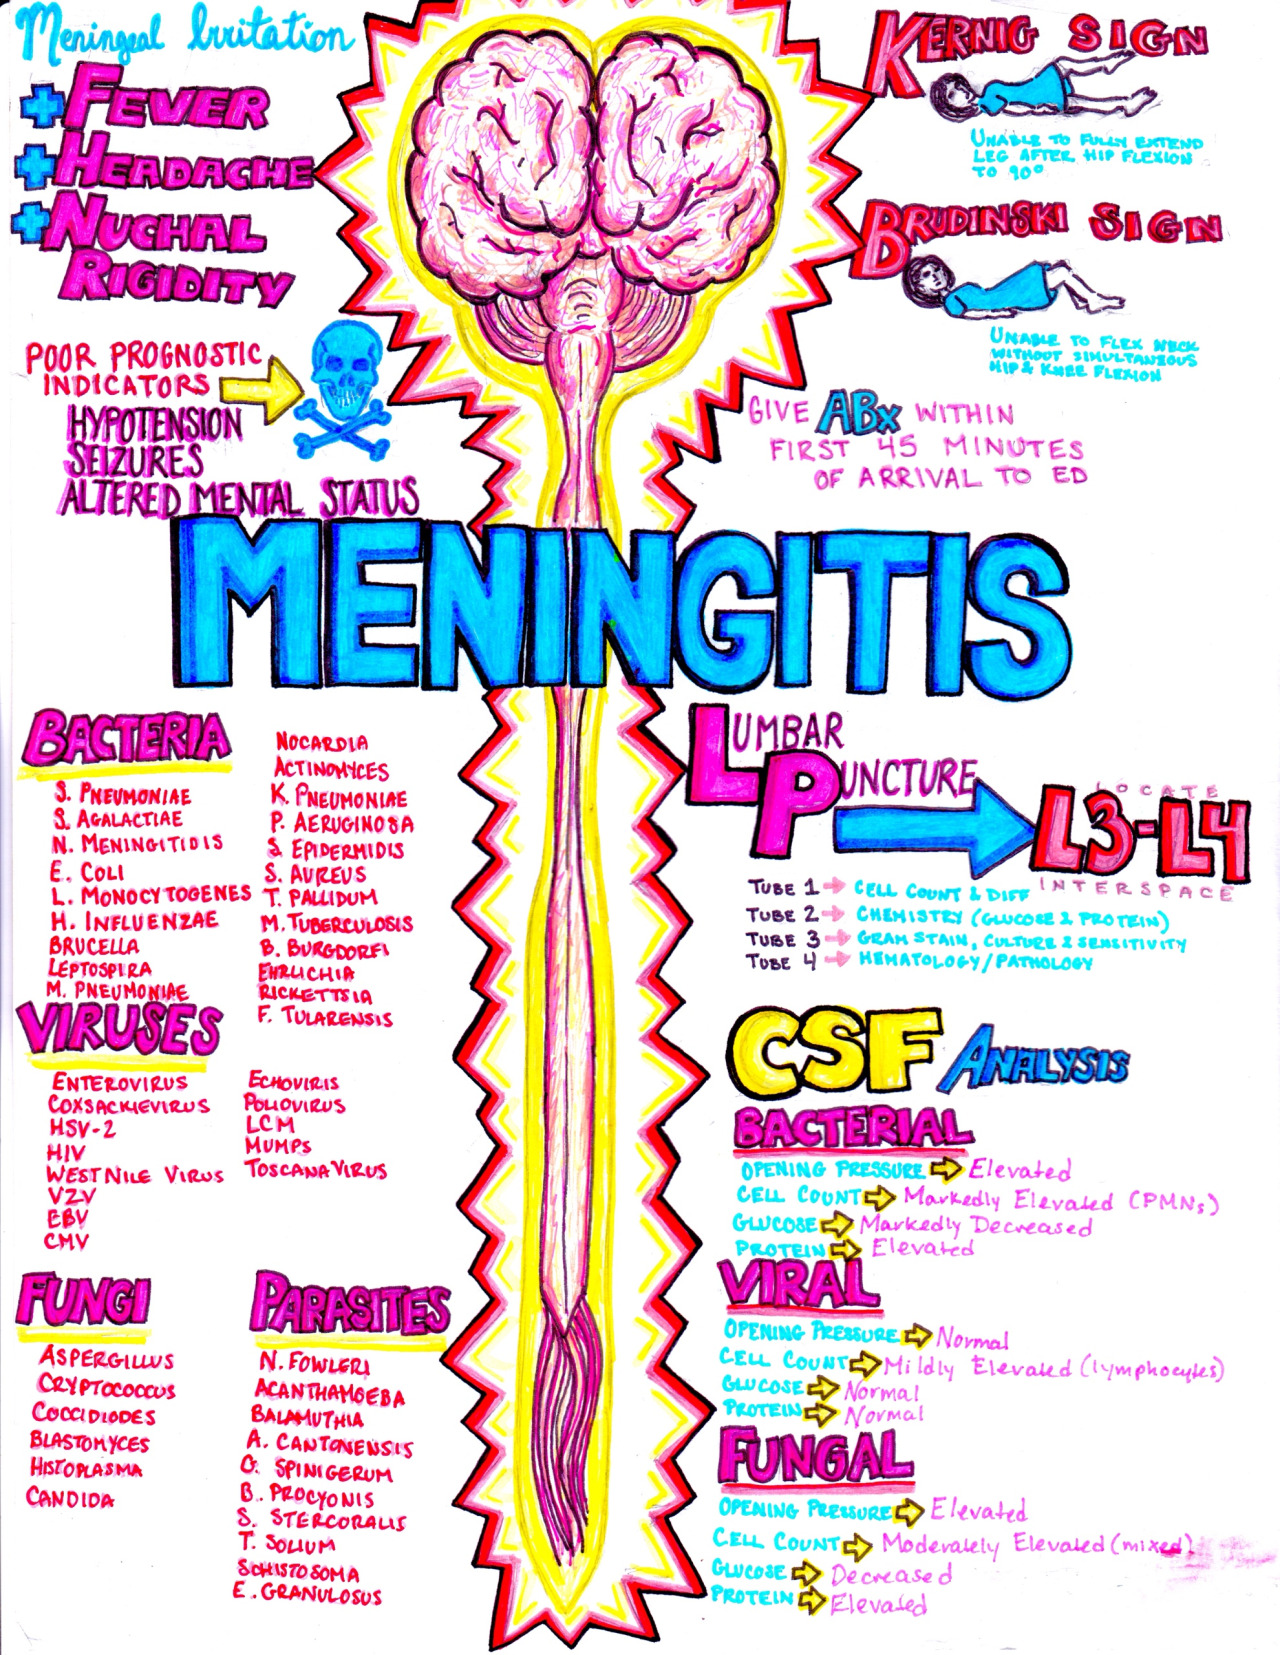 Meningeal Irritation
+ FEVER
+ HEADACHE
+ NUCHAL
RIGIDITY
POOR PROGNOSTIC
INDICATORS
HYPOTENSION
SEIZURES
ALTERED MENTAL STATUS
KERNIG SIGN
UNABLE TO FULLY EXTEND
LEG AFTER HIP FLEXION
TO 90°
BRUDINSKI SIGN
UNABLE TO FLEX NECK
WITHOUT SIMULTANEOUS
HIP & KNEE FLEXION
GIVE ABX WITHIN
FIRST 45 MINUTES
OF ARRIVAL TO ED
MENINGITIS
BACTERIA
S. PNEUMONIAE
S. AGALACTIAE
N. MENINGITIDIS
E. COLI
L. MONOCYTOGENES
H. INFLUENZAE
BRUCELLA
LEPTOSPIRA
M. PNEUMONIAE
NOCARDIA
ACTINOMYCES
K. PNEUMONIAE
P. AERUGINOSA
S. EPIDERMIDIS
S. AUREUS
T. PALLIDUM
M. TUBERCULOSIS
B. BURGDORFI
EHRLICHIA
RICKETTSIA
F. TULARENSIS
VIRUSES
ENTEROVIRUS
COXSACKIEVIRUS
HSV-2
HIV
WEST NILE VIRUS
VZV
EBV
CMV
ECHOVIRIS
POLIOVIRUS
LCM
MUMPS
TOSCANA VIRUS
FUNGI
ASPERGILLUS
CRYPTOCOCCUS
COCCIDIODES
BLASTOMYCES
HISTOPLASMA
CANDIDA
PARASITES
N. FOWLERI
ACANTHAMOEBA
BALAMUTHIA
A. CANTONENSIS
G. SPINIGERUM
B. PROCYONIS
S. STERCORALIS
T. SOLIUM
SCHISTOSOMA
E. GRANULOSUS
LUMBAR
PUNCTURE
LOCATE
L3-L4
INTERSPACE
TUBE 1 → CELL COUNT & DIFF
TUBE 2 → CHEMISTRY (GLUCOSE & PROTEIN)
TUBE 3 → GRAM STAIN, CULTURE & SENSITIVITY
TUBE 4 → HEMATOLOGY/PATHOLOGY
CSF ANALYSIS
BACTERIAL
OPENING PRESSURE → Elevated
CELL COUNT → Markedly Elevated (PMNs)
GLUCOSE → Markedly Decreased
PROTEIN → Elevated
VIRAL
OPENING PRESSURE → Normal
CELL COUNT → Mildly Elevated (lymphocytes)
GLUCOSE → Normal
PROTEIN → Normal
FUNGAL
OPENING PRESSURE → Elevated
CELL COUNT → Moderately Elevated (mixed)
GLUCOSE → Decreased
PROTEIN → Elevated